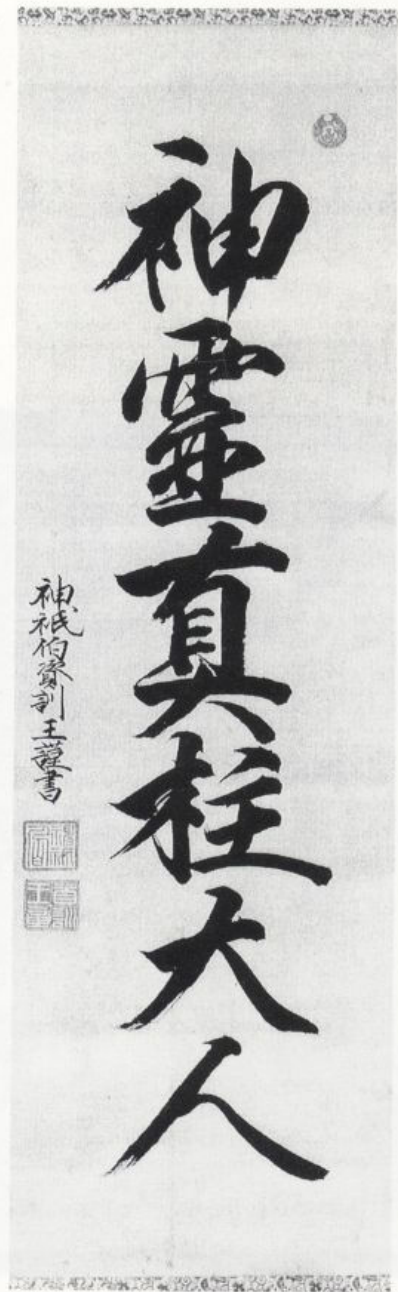 神靈真柱大人
神祇伯資訓王謹書